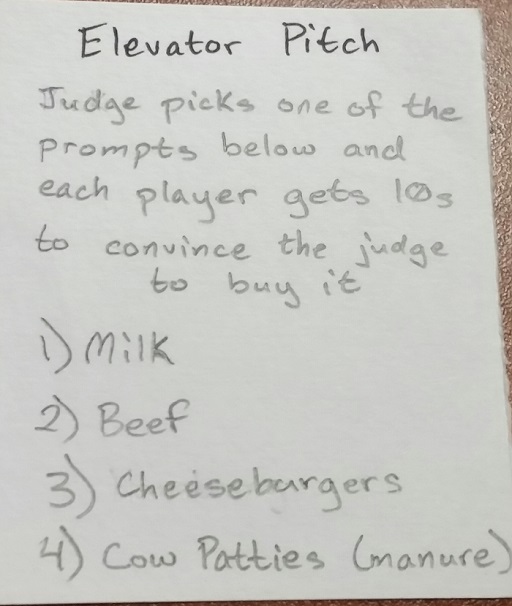 Elevator Pitch
Judge picks one of the
prompts below and
each player gets 10s
to convince the judge
to buy it
1) Milk
2) Beef
3) Cheeseburgers
4) Cow Patties (manure)